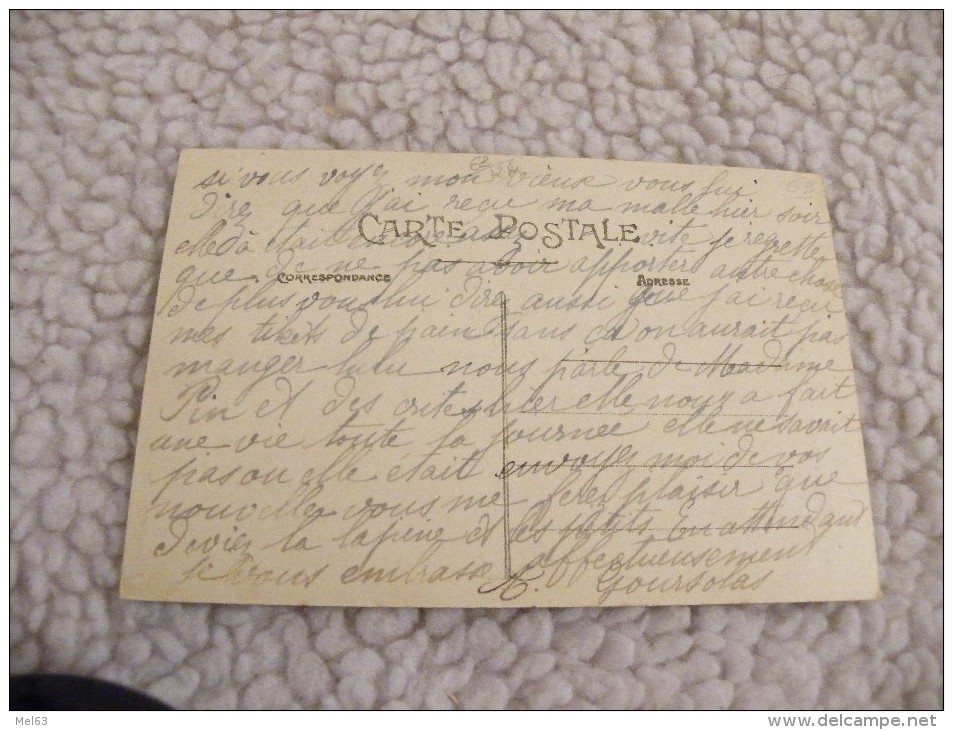 si vous voyez mon vieux vous lui
direz que j'ai reçu ma malle hier soir
CARTE POSTALE
était encore assez vite je regrette
que de ne pas avoir apporters autre chose
CORRESPONDANCE
ADRESSE
de plus vous lui direz aussi que j'ai reçu
mes tikets de pain sans ca on aurait pas
manger lulu nous parle de Madame
Pin et des hier elle nous a fait
une vie toute la journee elle ne savait
pas ou elle était envoyez moi de vos
nouvelles vous me ferez plaisir que
devien la lapine et les petits En attendant
je vous embrasse affectueusement
Goursolas
Mel63
www.delcampe.net